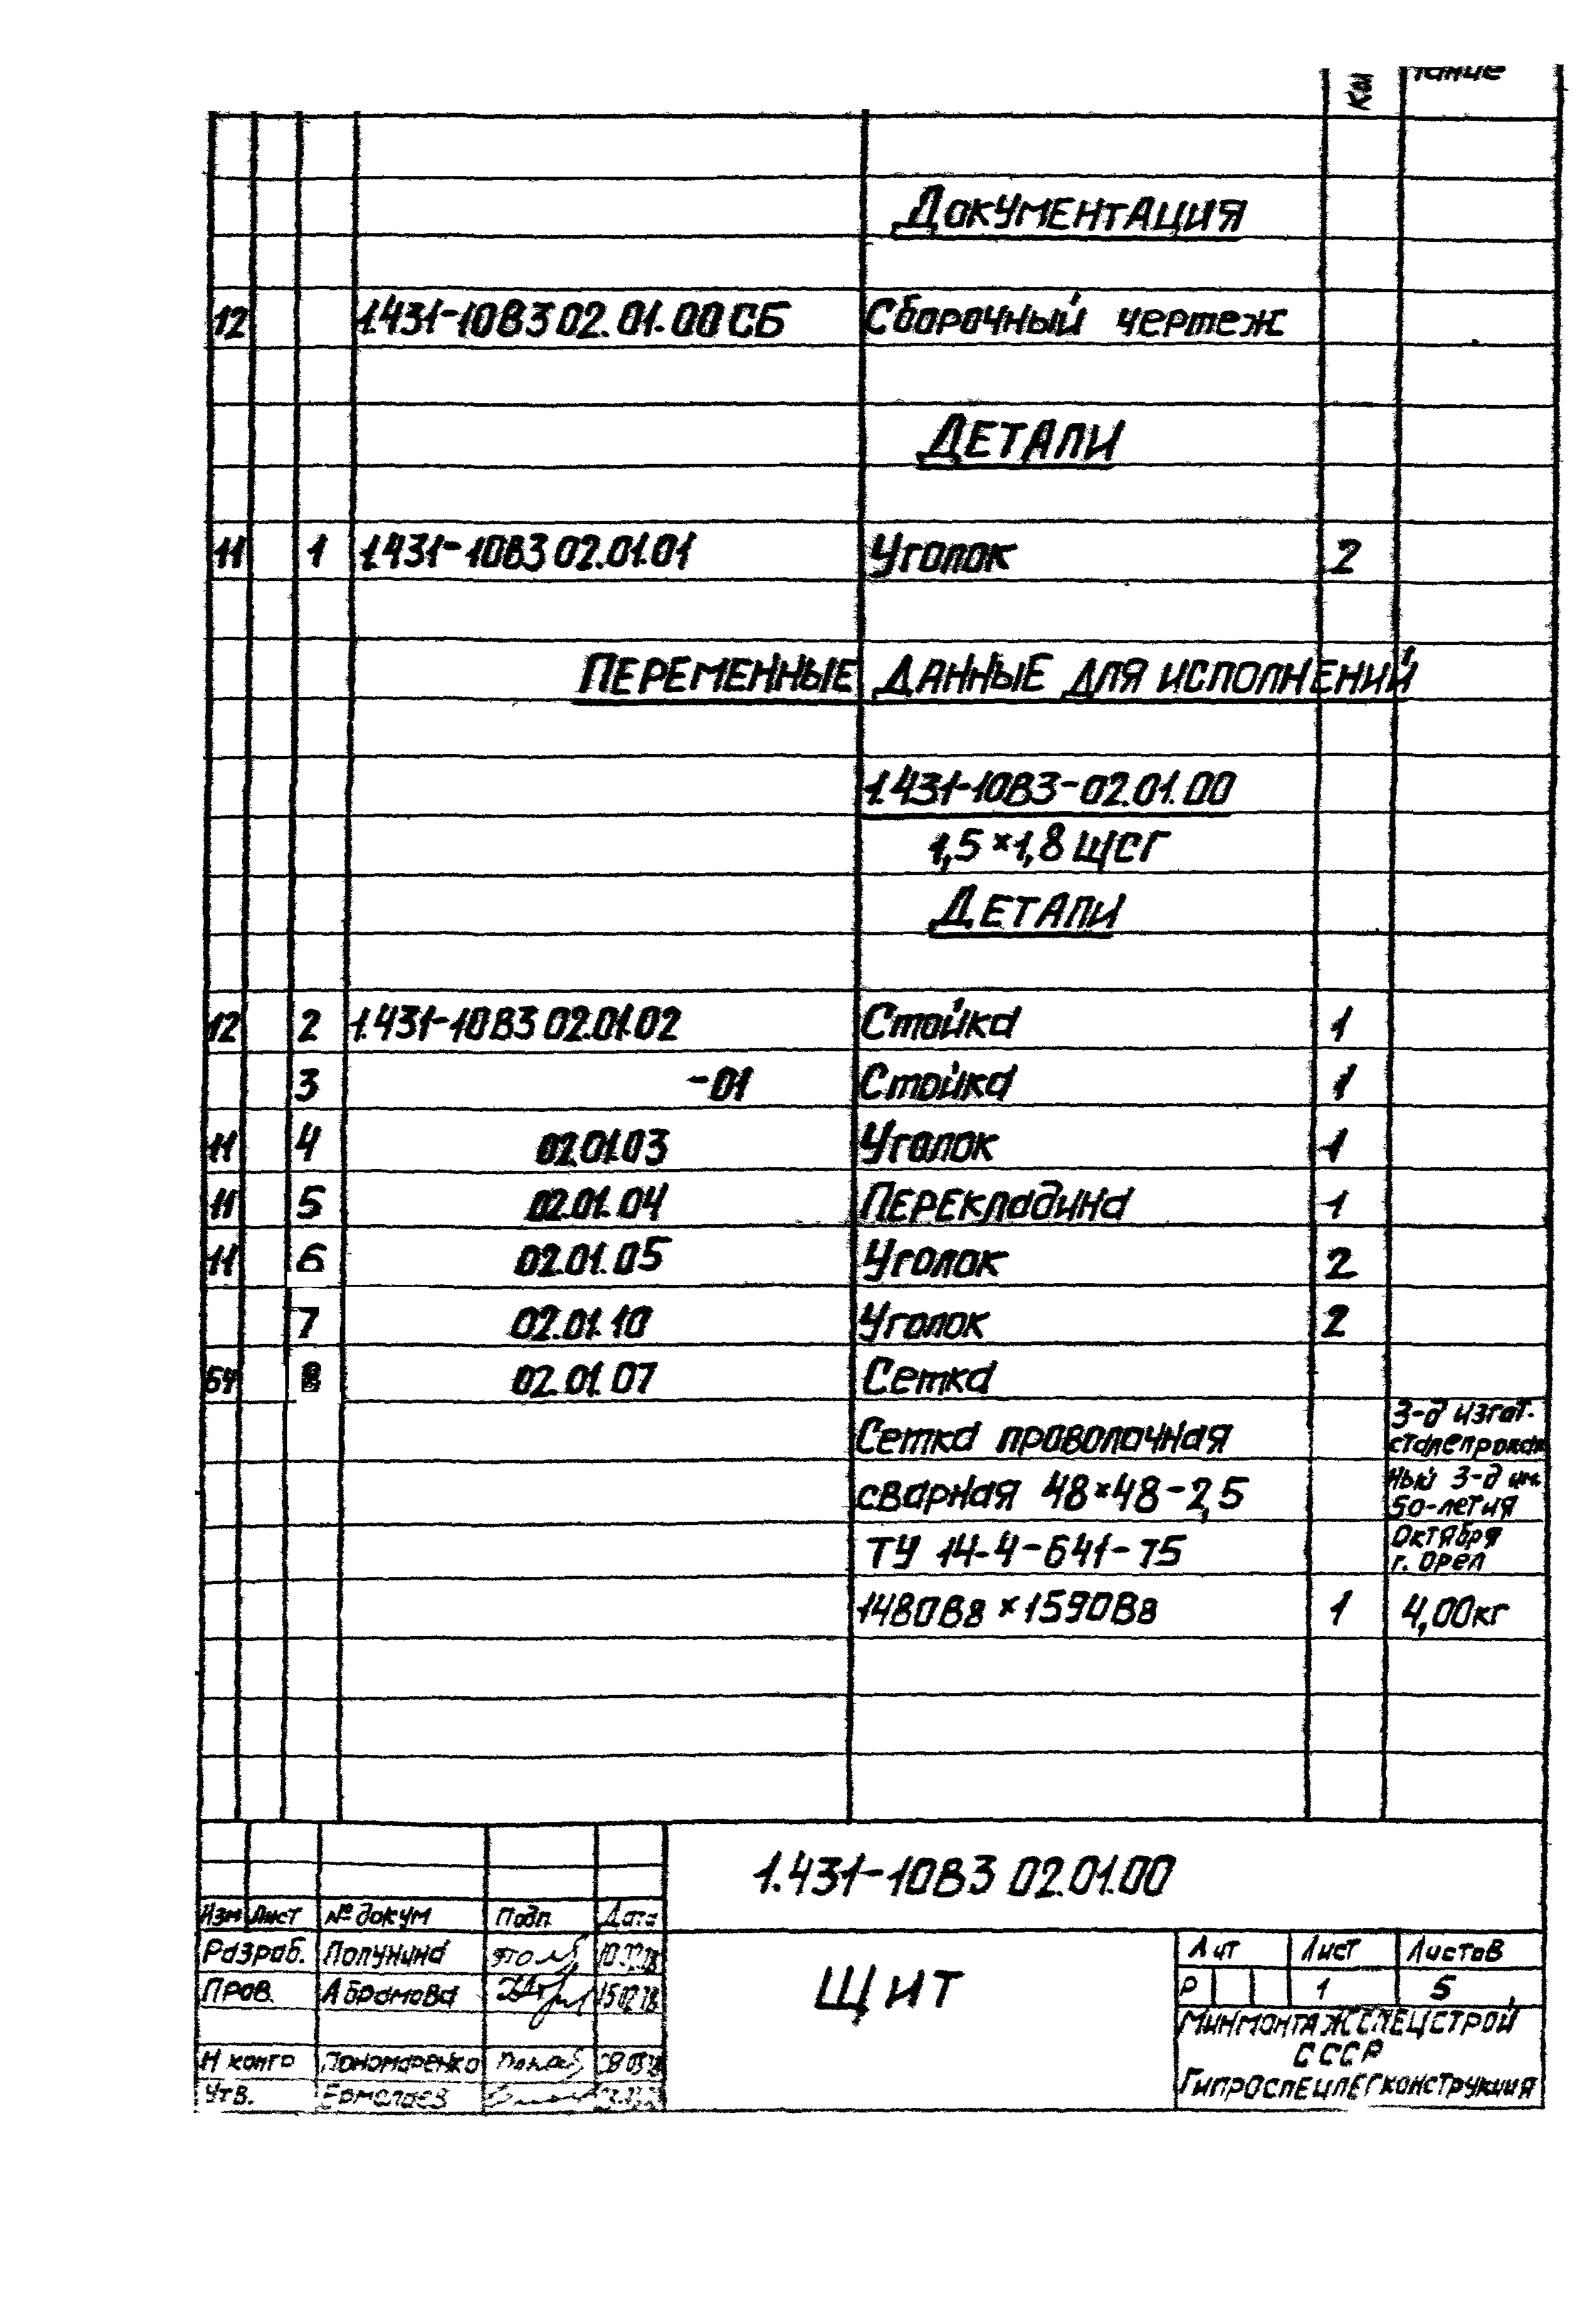 Документация
12 1.431-10В3 02.01.00 СБ Сборочный чертеж
Детали
11 1 1.431-10В3 02.01.01 Уголок 2
Переменные данные для исполнений
1.431-10В3-02.01.00
1,5×1,8 ЩСГ
Детали
12 2 1.431-10В3 02.01.02 Стойка 1
3 -01 Стойка 1
11 4 02.01.03 Уголок 1
11 5 02.01.04 Перекладина 1
11 6 02.01.05 Уголок 2
7 02.01.10 Уголок 2
БЧ 8 02.01.07 Сетка
Сетка проволочная З-д изгот. сталепрокат
сварная 48×48-2,5 ный З-д им. 50-летия
ТУ 14-4-641-75 Октября г. Орел
1480Вв × 1590Вв 1 4,00кг
1.431-10В3 02.01.00
Изм Лист № докум Подп Дата
Разраб. Полунина
Пров. Абрамова
Н контр Пономаренко
Утв. Ермолаев
Щит
Лит Лист Листов
Р 1 5
Минмонтажспецстрой
СССР
Гипроспецлегконструкция